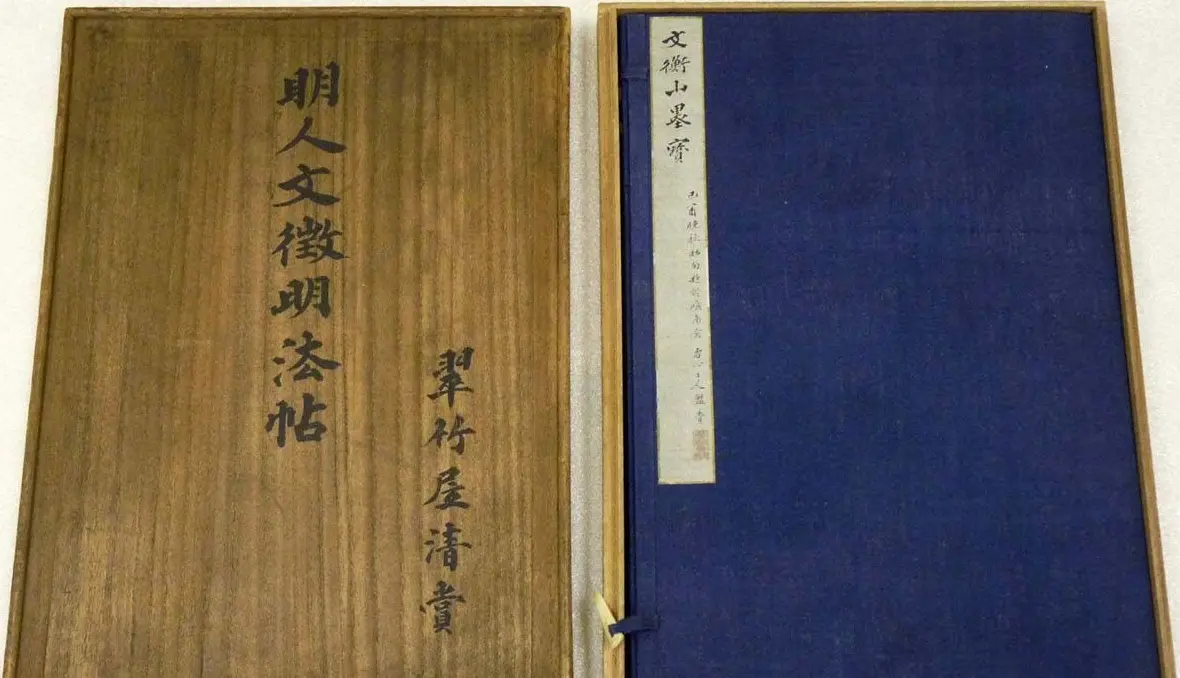 明人文徵明法帖
翠竹屋清賞
文衡山墨寶
晚秋